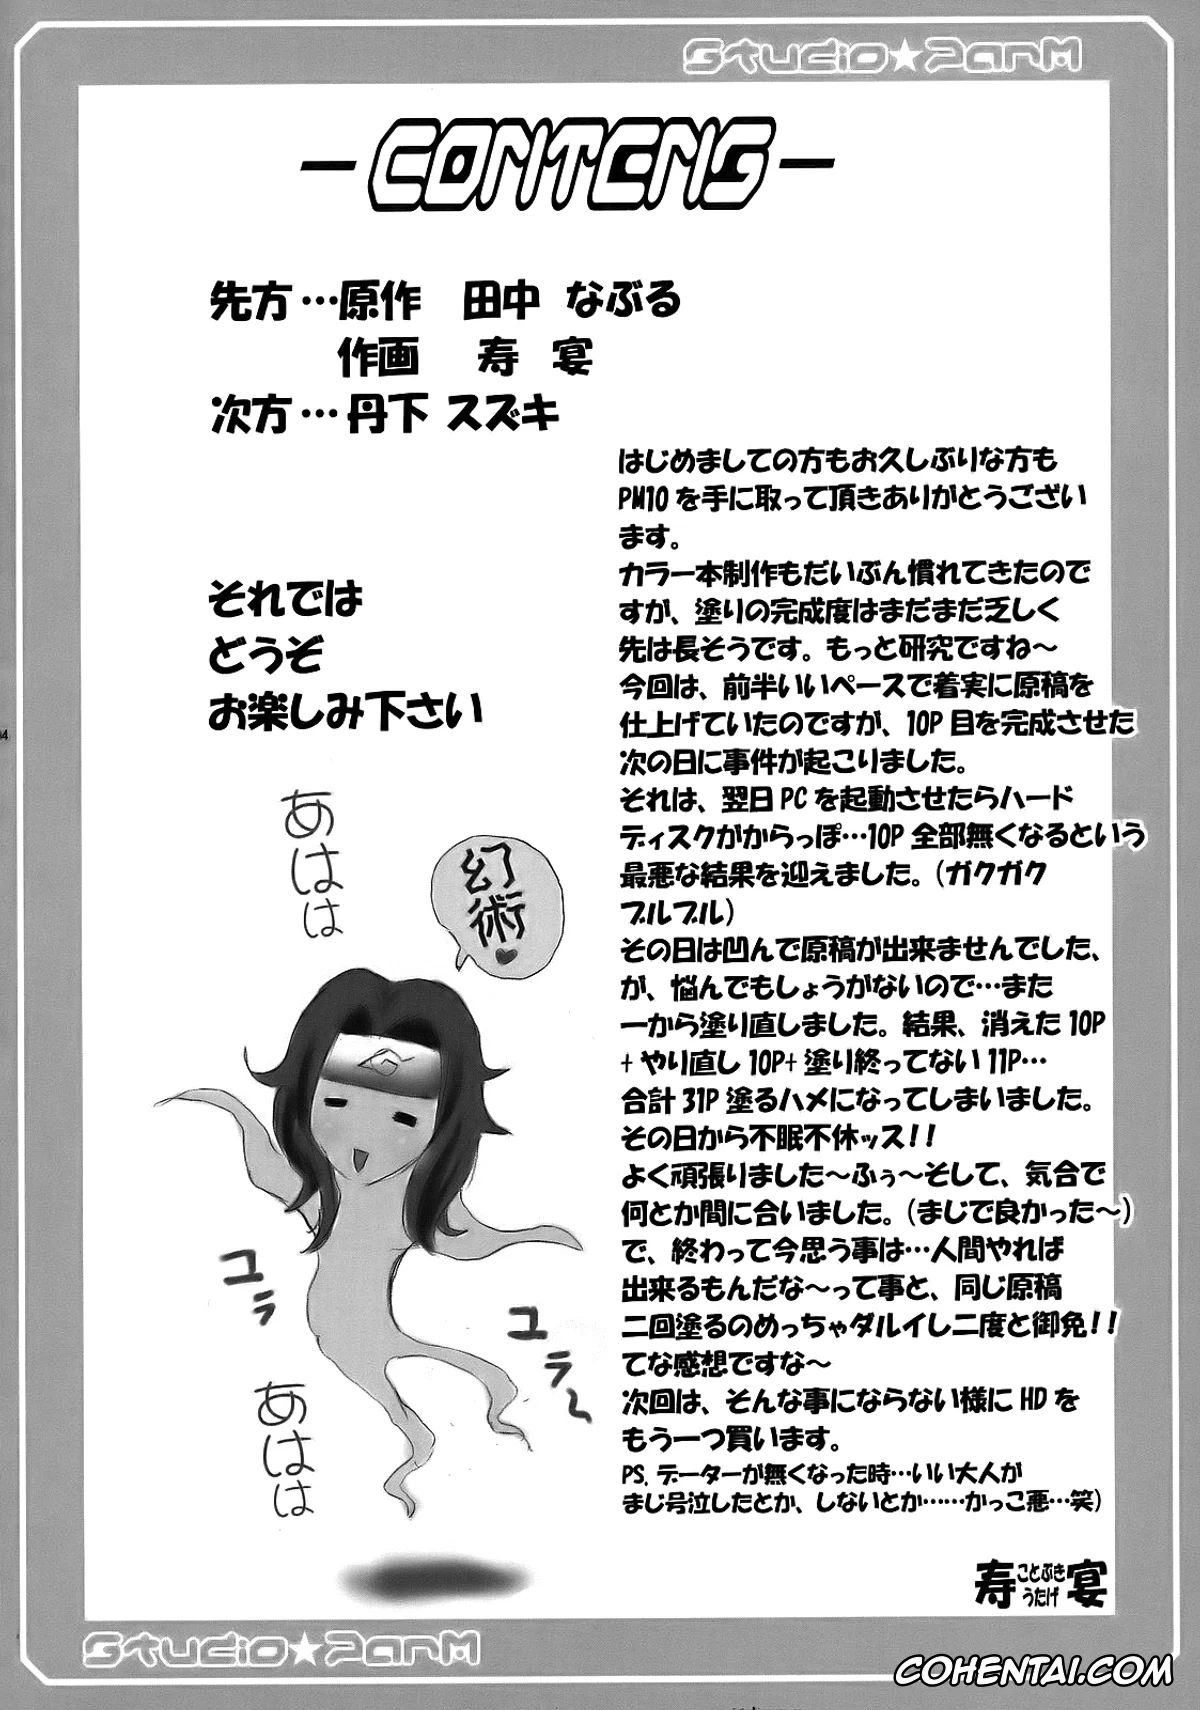 Studio★PanM
-CONTENS-
先方…原作 田中 なぶる
作画 寿 宴
次方…丹下 スズキ
はじめましての方もお久しぶりな方も
PM10を手に取って頂きありがとうござい
ます。
カラー本制作もだいぶん慣れてきたので
すが、塗りの完成度はまだまだ乏しく
先は長そうです。もっと研究ですね～
今回は、前半いいペースで着実に原稿を
仕上げていたのですが、10P目を完成させた
次の日に事件が起こりました。
それは、翌日PCを起動させたらハード
ディスクがからっぽ…10P全部無くなるという
最悪な結果を迎えました。(ガクガク
ブルブル)
その日は凹んで原稿が出来ませんでした、
が、悩んでもしょうがないので…また
一から塗り直しました。結果、消えた10P
+やり直し10P+塗り終ってない11P…
合計31P塗るハメになってしまいました。
その日から不眠不休ッス!!
よく頑張りました～ふぅ～そして、気合で
何とか間に合いました。(まじで良かった～)
で、終わって今思う事は…人間やれば
出来るもんだな～って事と、同じ原稿
二回塗るのめっちゃダルイし二度と御免!!
てな感想ですな～
次回は、そんな事にならない様にHDを
もう一つ買います。
PS.データーが無くなった時…いい大人が
まじ号泣したとか、しないとか……かっこ悪…笑)
寿宴
ことぶき
うたげ
それでは
どうぞ
お楽しみ下さい
あはは
幻術♥
ユラ
ユラ～
あはは
04
Studio★PanM
COHENTAI.COM